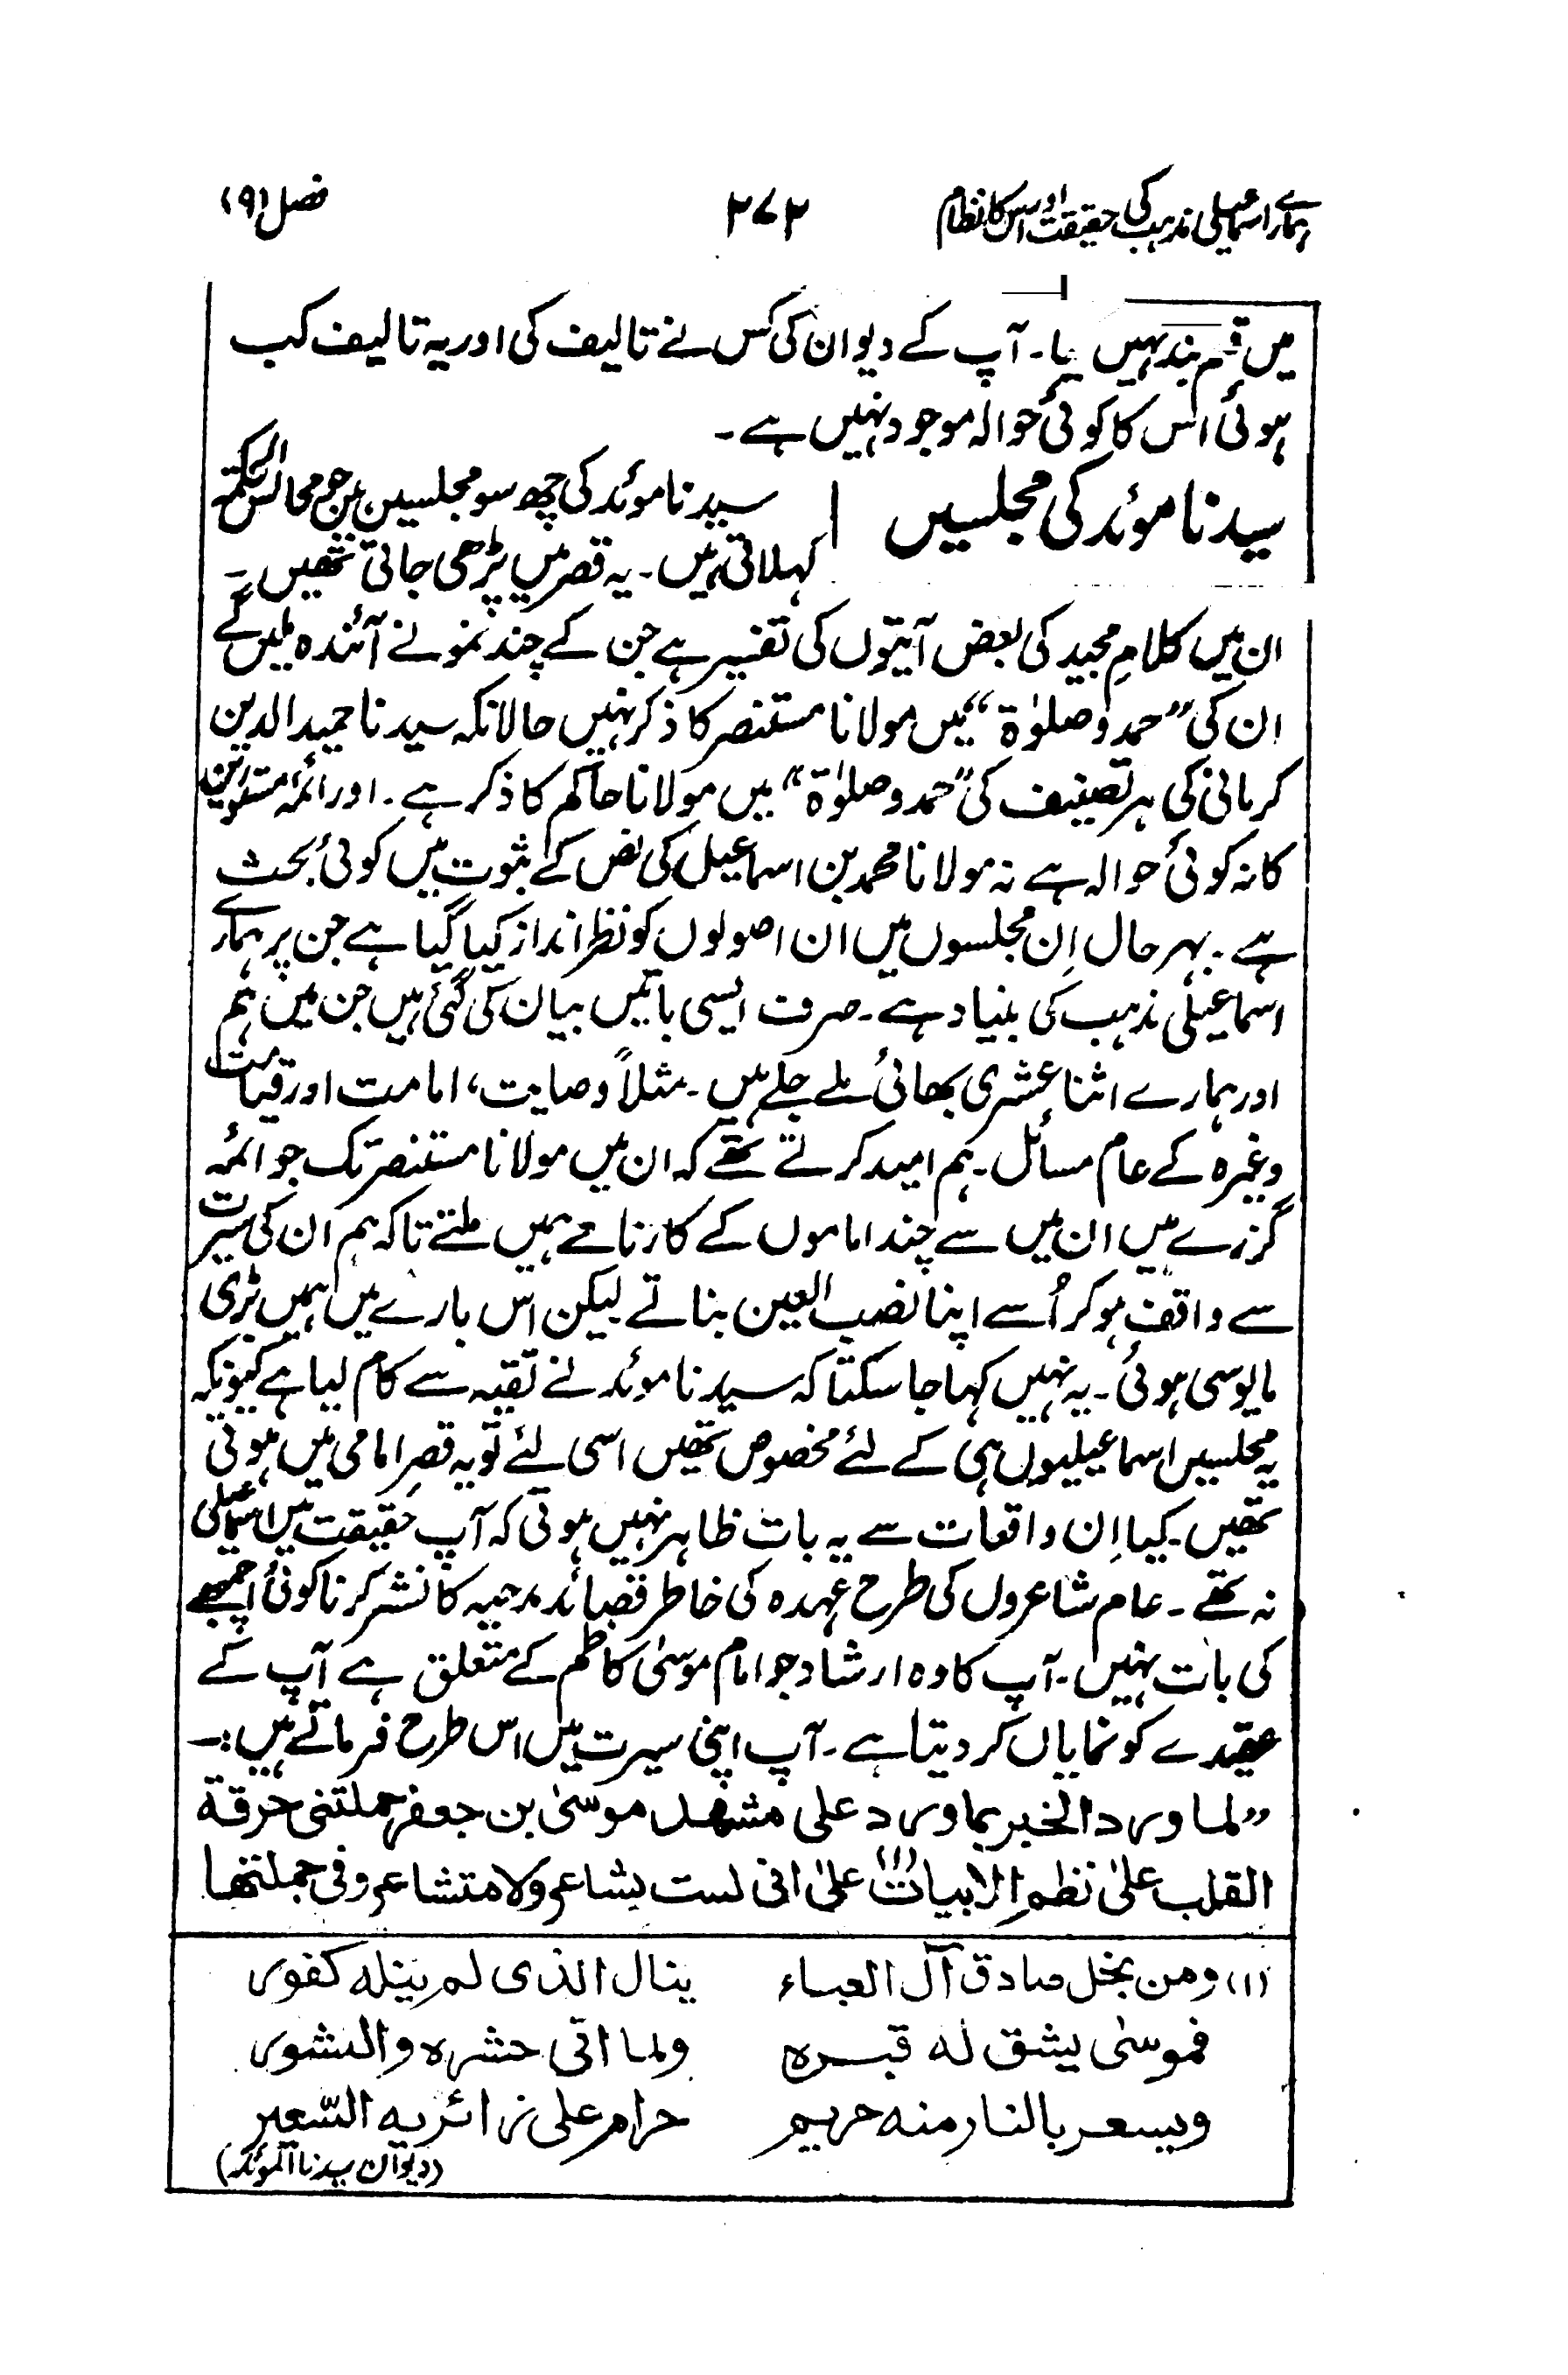 ہمارے اسماعیلی مذہب کی حقیقت اور اس کا نظام ۲۷۲ فصل (۹)
میں قلم بند نہیں یا۔ آپ کے دیوان کی کس نے تالیف کی اور یہ تالیف کب
ہوئی اس کا کوئی حوالہ موجود نہیں ہے۔
سیدنا موئد کی مجلسیں
سیدنا موئد کی چھ سو مجلسیں ہیں جو مجالس الحکمۃ
کہلاتی ہیں۔ یہ قصر میں پڑھی جاتی تھیں۔
ان میں کلامِ مجید کی بعض آیتوں کی تفسیر ہے جن کے چند نمونے آئندہ ملیں گے
ان کی ”حمد وصلوٰۃ“ میں مولانا مستنصر کا ذکر نہیں حالانکہ سیدنا حمید الدین
کرمانی کی ہر تصنیف کی ”حمد وصلوٰۃ“ میں مولانا حاکم کا ذکر ہے۔ اور ائمۂ مستورین
کا نہ کوئی حوالہ ہے نہ مولانا محمد بن اسماعیل کی نص کے ثبوت میں کوئی بحث
ہے۔ بہر حال اِن مجلسوں میں ان اصولوں کو نظر انداز کیا گیا ہے جن پر ہمارے
اسماعیلی مذہب کی بنیاد ہے۔ صرف ایسی باتیں بیان کی گئی ہیں جن میں ہم
اور ہمارے اثنا عشری بھائی ملے جلے ہیں۔ مثلاً وصایت، امامت اور قیامت
وغیرہ کے عام مسائل۔ ہم امید کرتے تھے کہ ان میں مولانا مستنصر تک جو ائمہ
گزرے ہیں ان میں سے چند اماموں کے کارنامے ہمیں ملتے تاکہ ہم ان کی سیرت
سے واقف ہو کر اُسے اپنا نصب العین بناتے لیکن اس بارے میں ہمیں بڑی
مایوسی ہوئی۔ یہ نہیں کہا جا سکتا کہ سیدنا موئد نے تقیہ سے کام لیا ہے کیونکہ
یہ مجلسیں اسماعیلیوں ہی کے لئے مخصوص تھیں اسی لئے تو یہ قصرِ امامی میں ہوتی
تھیں۔ کیا اِن واقعات سے یہ بات ظاہر نہیں ہوتی کہ آپ حقیقت میں اسماعیلی
نہ تھے۔ عام شاعروں کی طرح عہدہ کی خاطر قصائد مدحیہ کا نشر کرنا کوئی اچنبھے
کی بات نہیں۔ آپ کا وہ ارشاد جو امام موسیٰ کاظم کے متعلق ہے آپ کے
عقیدے کو نمایاں کر دیتا ہے۔ آپ اپنی سیرت میں اس طرح فرماتے ہیں:۔
”لما ورد الخبر بما ورد علی مشھد موسیٰ بن جعفر حملتنی حرقة
القلب علیٰ نظم الابیات (۱) علیٰ انی لست بشاعر ولا متشاعر وفی جملتھا
(۱) ومن نجل صادق آل العباء ینال الذی لم ینله کفور
فموسیٰ یشق له قبره ولما اتی حشره والنشور
ویسعر بالنار منه حریم حرام علی زائریه السّعیر
(دیوان سیدنا الموئد)